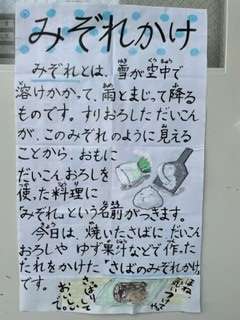 みぞれかけ
みぞれとは、雪が空中で
溶けかかって、雨とまじって降る
ものです。すりおろしただいこん
が、このみぞれのように見える
ことから、おもに
だいこんおろしを
使った料理に
「みぞれ」という名前がつきます。
今日は、焼いたさばに だいこん
おろしや ゆず果汁などで 作った
たれをかけた「さばのみぞれかけ」
です。